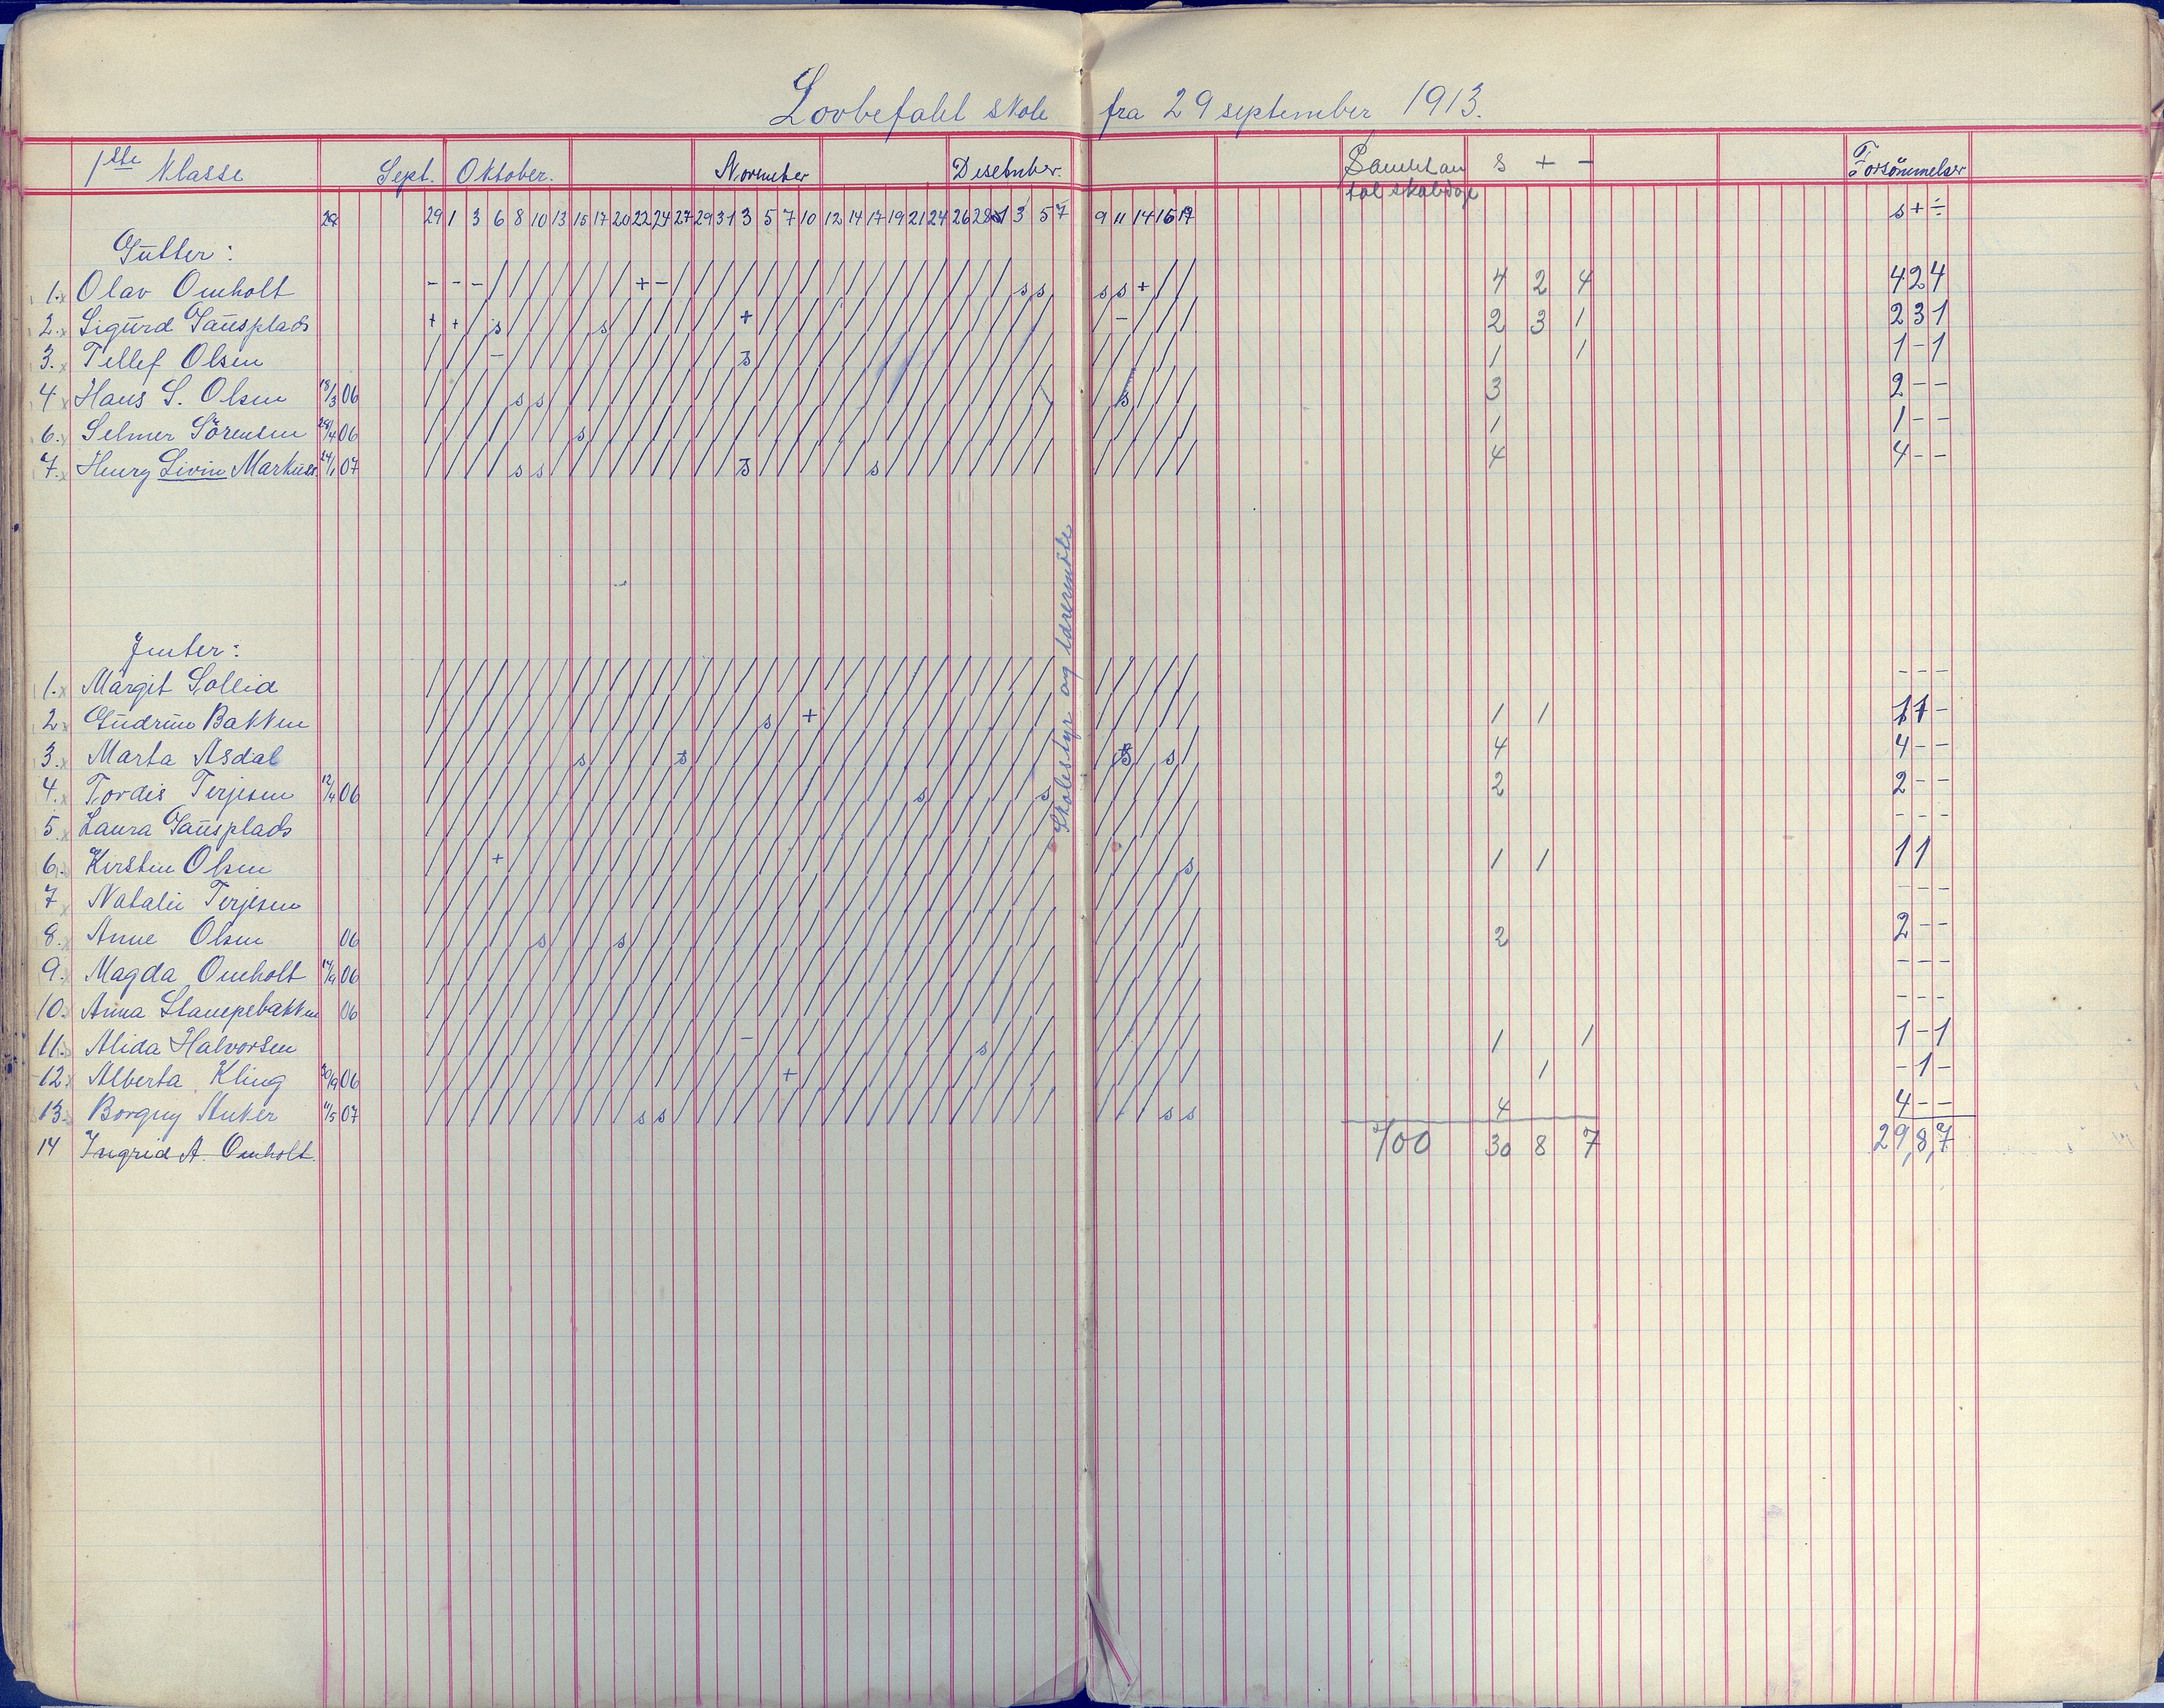 Lovbefalt skole fra 29 september 1913.
1ste Klasse Sept. Oktober. November Desember. s + - Forsömmelser
29 1 3 6 8 10 13 15 17 20 22 24 27 29 31 3 5 7 10 12 14 17 19 21 24 26 28 1 3 5 7 9 11 14 16 17 s + ÷
Gutter:
1. Olav Omholt - - - + - s s s s + 4 2 4 4 2 4
2. Sigurd Sausplads + + s s + - 2 3 1 2 3 1
3. Tellef Olsen - s 1 1 1 - 1
4 Hans S. Olsen 18/3 06 s s s 3 2 - -
6. Selmer Sörensen 06 s 1 1 - -
7. Henry Livin Markuss. 24/1 07 s s s s 4 4 - -
Skolestyr og lærermöte
Jenter:
1. Margit Sollid - - -
2 Gudrun Bakken s + 1 1 1 1 -
3. Marta Asdal s s s s 4 4 - -
4. Tordis Terjesen 12/4 06 s s 2 2 - -
5. Laura Sausplads - - -
6. Kirsten Olsen + s 1 1 1 1
7 Natalie Terjesen - - -
8. Anne Olsen 06 s s 2 2 - -
9. Magda Omholt 06 - - -
10. Anna Stampebakken 06 - - -
11. Alida Halvorsen - s 1 1 1 - 1
12. Alberta Kling 06 + 1 - 1 -
13. Borgny Anker 11/5 07 s s s s 4 4 - -
14 Ingrid A. Omholt. 700 30 8 7 29,8,7